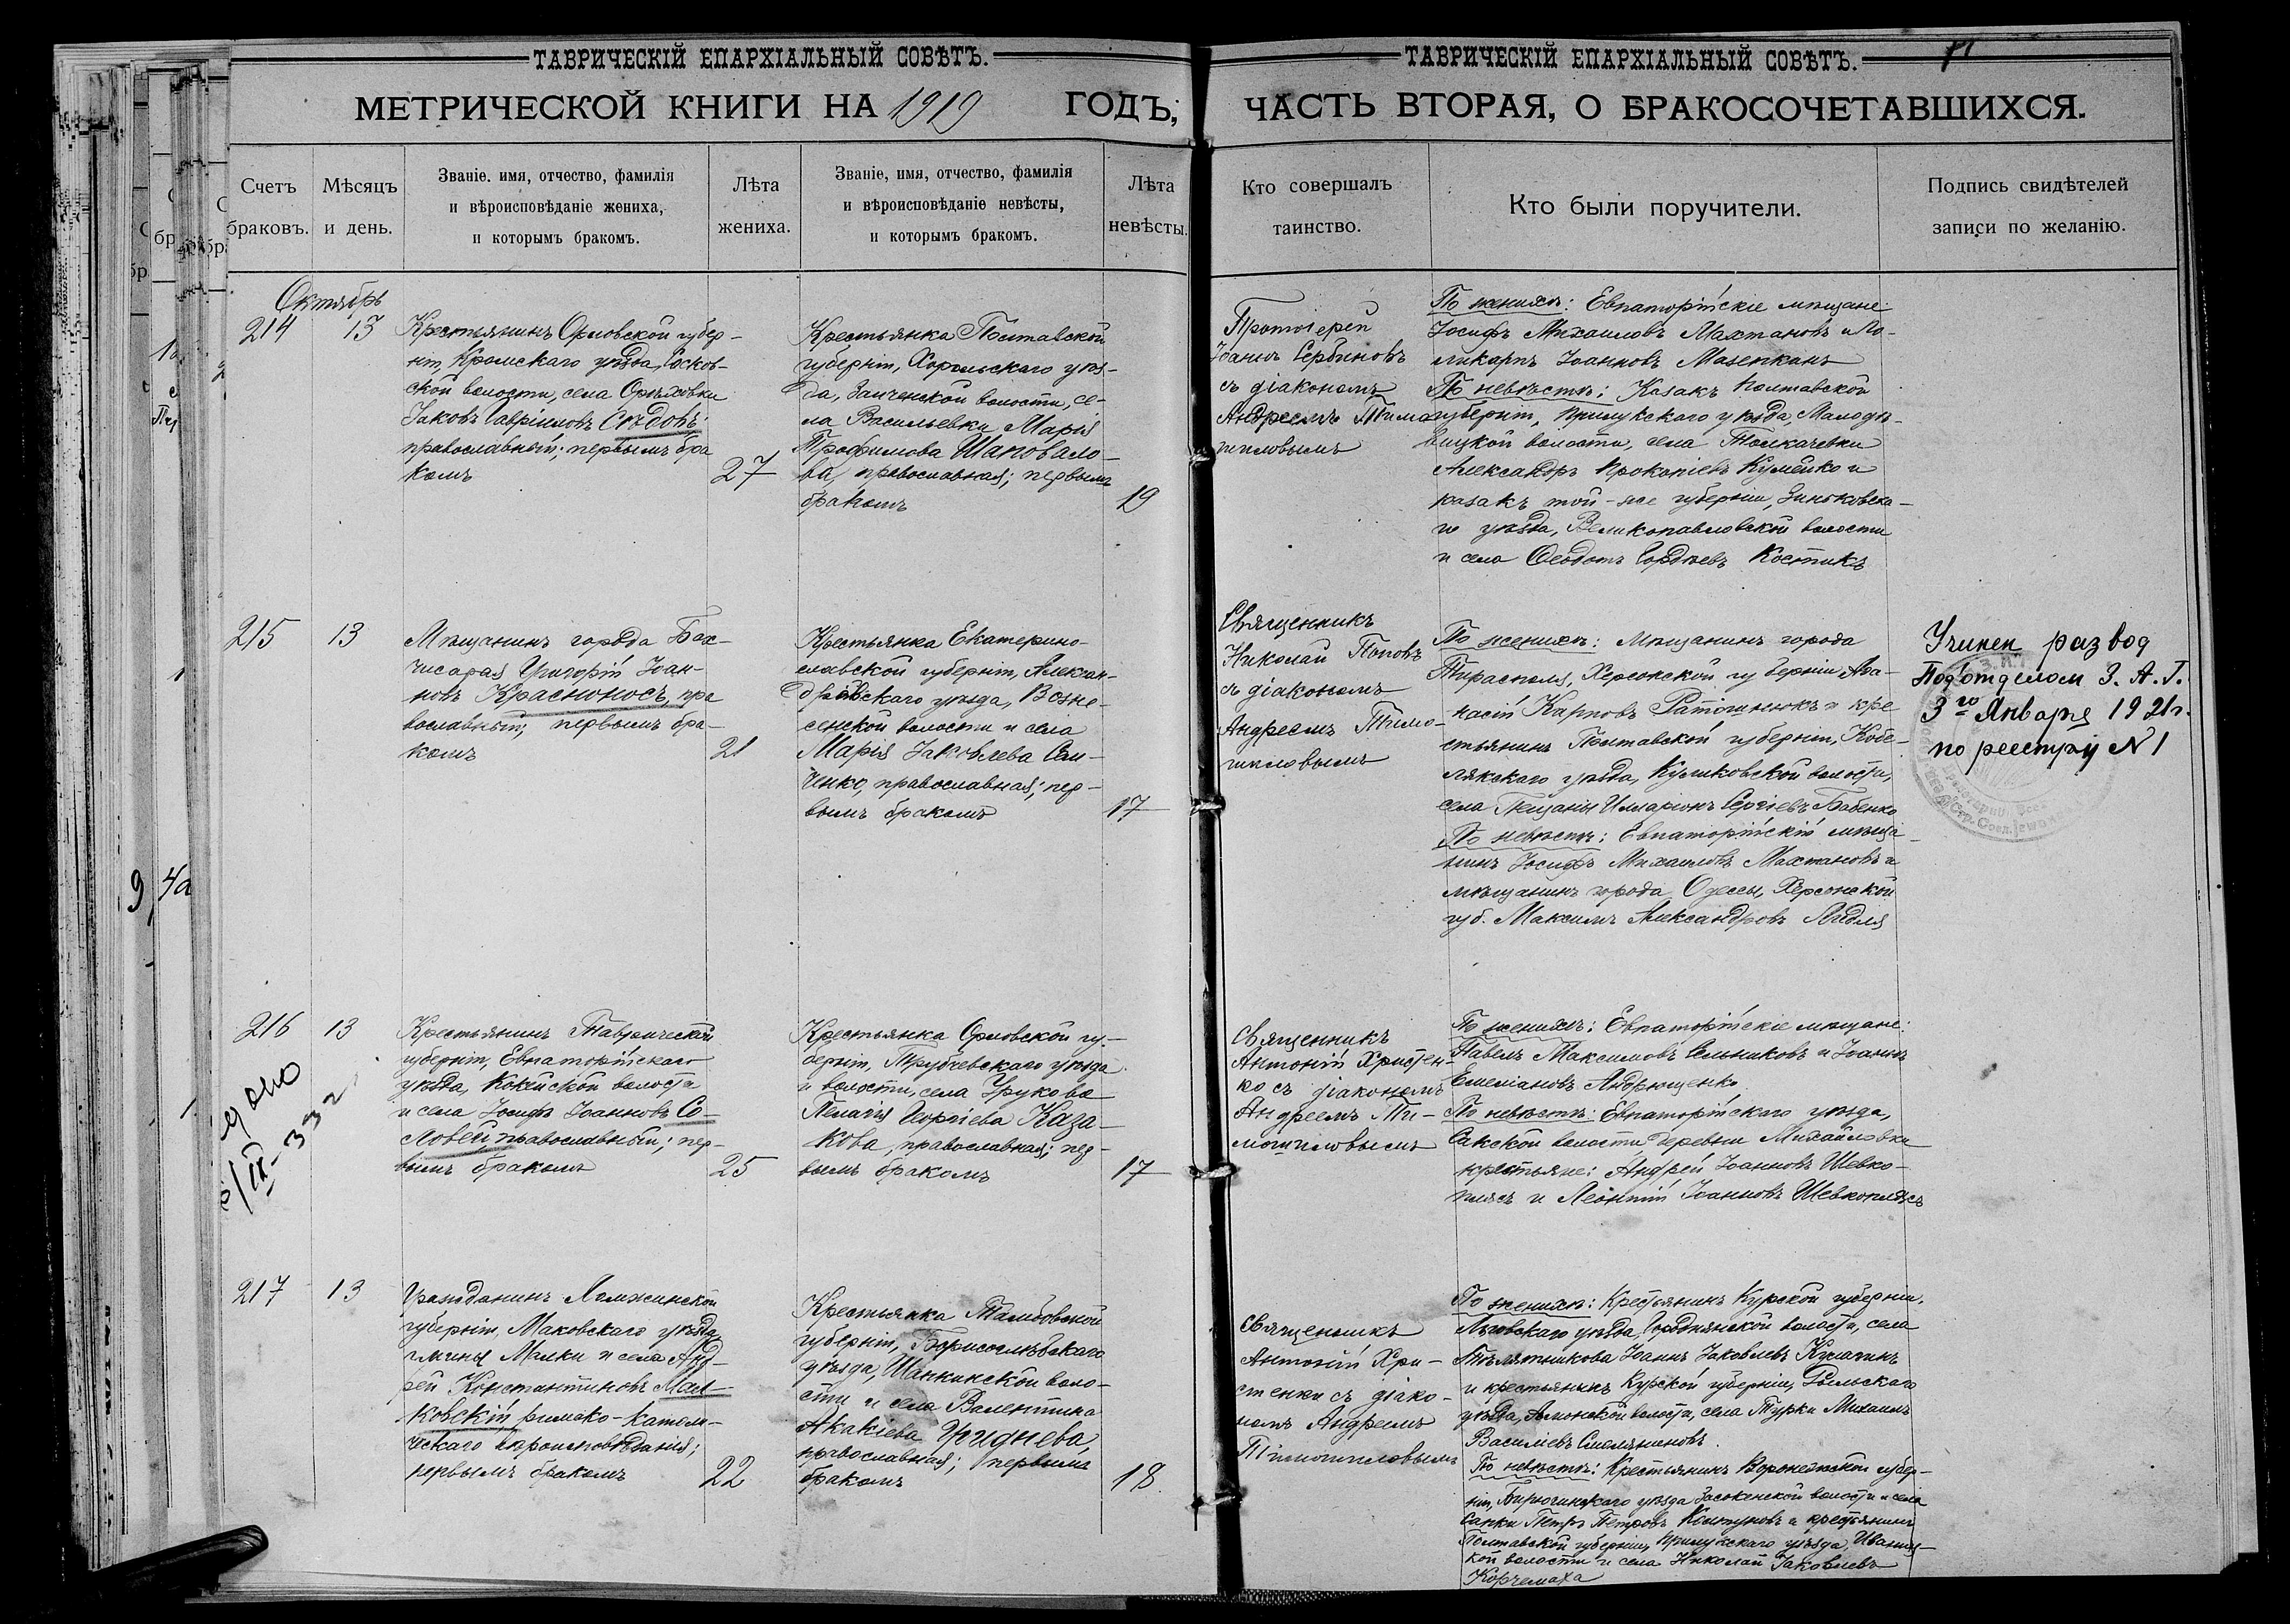 ТАВРИЧЕСКІЙ ЕПАРХІАЛЬНЫЙ СОВѢТЪ.
МЕТРИЧЕСКОЙ КНИГИ НА 1919 ГОДЪ,
Счетъ браковъ.
Мѣсяцъ и день.
Званіе, имя, отчество, фамилія
и вѣроисповѣданіе жениха,
и которымъ бракомъ.
Лѣта жениха.
Званіе, имя, отчество, фамилія
и вѣроисповѣданіе невѣсты,
и которымъ бракомъ.
Лѣта невѣсты.
ТАВРИЧЕСКІЙ ЕПАРХІАЛЬНЫЙ СОВѢТЪ.
ЧАСТЬ ВТОРАЯ, О БРАКОСОЧЕТАВШИХСЯ.
Кто совершалъ
таинство.
Кто были поручители.
Подпись свидѣтелей
записи по желанію.
Октябрь
214
13
Крестьянинъ Орловской губер-
ніи, Кромскаго уѣзда,
ской волости, села Орѣховки
Іаковъ Гавріиловъ Сѣдовъ,
православный; первымъ бра
комъ
27
Крестьянка Полтавской
губерніи, Хорольскаго уѣз-
да, волости, се-
ла Васильевки Марія
Трофимова Шаповало-
ва, православная; первымъ
бракомъ
19
Протоіерей
Іоаннъ Сербиновъ
съ діакономъ
Андреемъ Тимо
шиловымъ
По женихѣ: Евпаторійскіе мѣщане:
Іосифъ Михаиловъ Махтановъ и По-
ликарпъ Іоанновъ Мазепканъ
По невѣстѣ: Казакъ Полтавской
губерніи, Прилукскаго уѣзда, Малодѣ-
вицкой волости, села Толкачевки
Александръ Прокопіевъ Кумейко и
казакъ той-же губерніи, Зиньковска-
го уѣзда, Великопавловской волости
и села Ѳеодотъ Гордѣевъ Костикъ
215
13
Мѣщанинъ города Бах-
чисарая Григорій Іоан-
новъ Красноносъ, пра
вославный; первымъ бра-
комъ
21
Крестьянка Екатерино-
славской губерніи, Алексан-
дрійскаго уѣзда, Возне-
сенской волости и села
Марія Іаковлева Сам-
ченко, православная; пер-
вымъ бракомъ
17
Священникъ
Николай Поповъ
съ діакономъ
Андреемъ Тимо-
шиловымъ
По женихѣ: Мѣщанинъ города
Тирасполя, Херсонской губерніи Аѳа-
насій Карповъ Ратошнюкъ и кре
стьянинъ Полтавской губерніи, Кобе-
лякскаго уѣзда, Куликовской волости,
села Пещаны Иларіонъ Сергіевъ Бабенко
По невѣстѣ: Евпаторійскій мѣща-
нинъ Іосифъ Михаиловъ Махтановъ и
мѣщанинъ города Одессы, Херсонской
губ. Максимъ Александровъ
Учинен развод
Подотделом З. А. Г.
3го Января 1921 г.
по реестру N 1
216
13
Крестьянинъ Таврической
губерніи, Евпаторійскаго
уѣзда, волости
и села Іосифъ Іоанновъ Со-
ловей, православный; пер-
вымъ бракомъ
25
Крестьянка Орловской гу-
берніи, Трубчевскаго уѣзда
и волости, села
Пелагія Георгіева Каза-
кова, православная; пер-
вымъ бракомъ
17
Священникъ
Антоній Христен-
ко съ діакономъ
Андреемъ Ти-
мошиловымъ
По женихѣ: Евпаторійскіе мѣщане:
Павелъ Максимовъ Сельниковъ и Іоаннъ
Емеліановъ Андрющенко
По невѣстѣ: Евпаторійскаго уѣзда,
Сакской волости деревни Михайловки
крестьяне: Андрей Іоанновъ Шевко-
плясъ и Леонтій Іоанновъ Шевкоплясъ
217
13
Гражданинъ Ломжинской
губерніи, Маковскаго уѣзда,
гмины Малки и села Анд-
рей Константиновъ Мал-
ковскій, римско-католи-
ческаго вѣроисповѣданія;
первымъ бракомъ
22
Крестьянка Тамбовской
губерніи, Борисоглѣбскаго
уѣзда, Шапкинской воло-
сти и села Валентина
Акакіева Гриднева,
православная; первымъ
бракомъ
18
Священникъ
Антоній Хри-
стенко съ діако-
номъ Андреемъ
Тимошиловымъ
По женихѣ: Крестьянинъ Курской губерніи,
Льговскаго уѣзда, волости, села
Іоаннъ Іаковлевъ
и крестьянинъ Курской губерніи, Рыльскаго
уѣзда, волости, села Михаилъ
Василіевъ Смеляниновъ.
По невѣстѣ: Крестьянинъ Воронежской губер-
ніи, Бирюченскаго уѣзда волости и села
Петръ Петровъ и крестьянинъ
Полтавской губерніи, Прилукскаго уѣзда, Иваниц-
кой волости и села Николай Іаковлевъ
Корчемаха